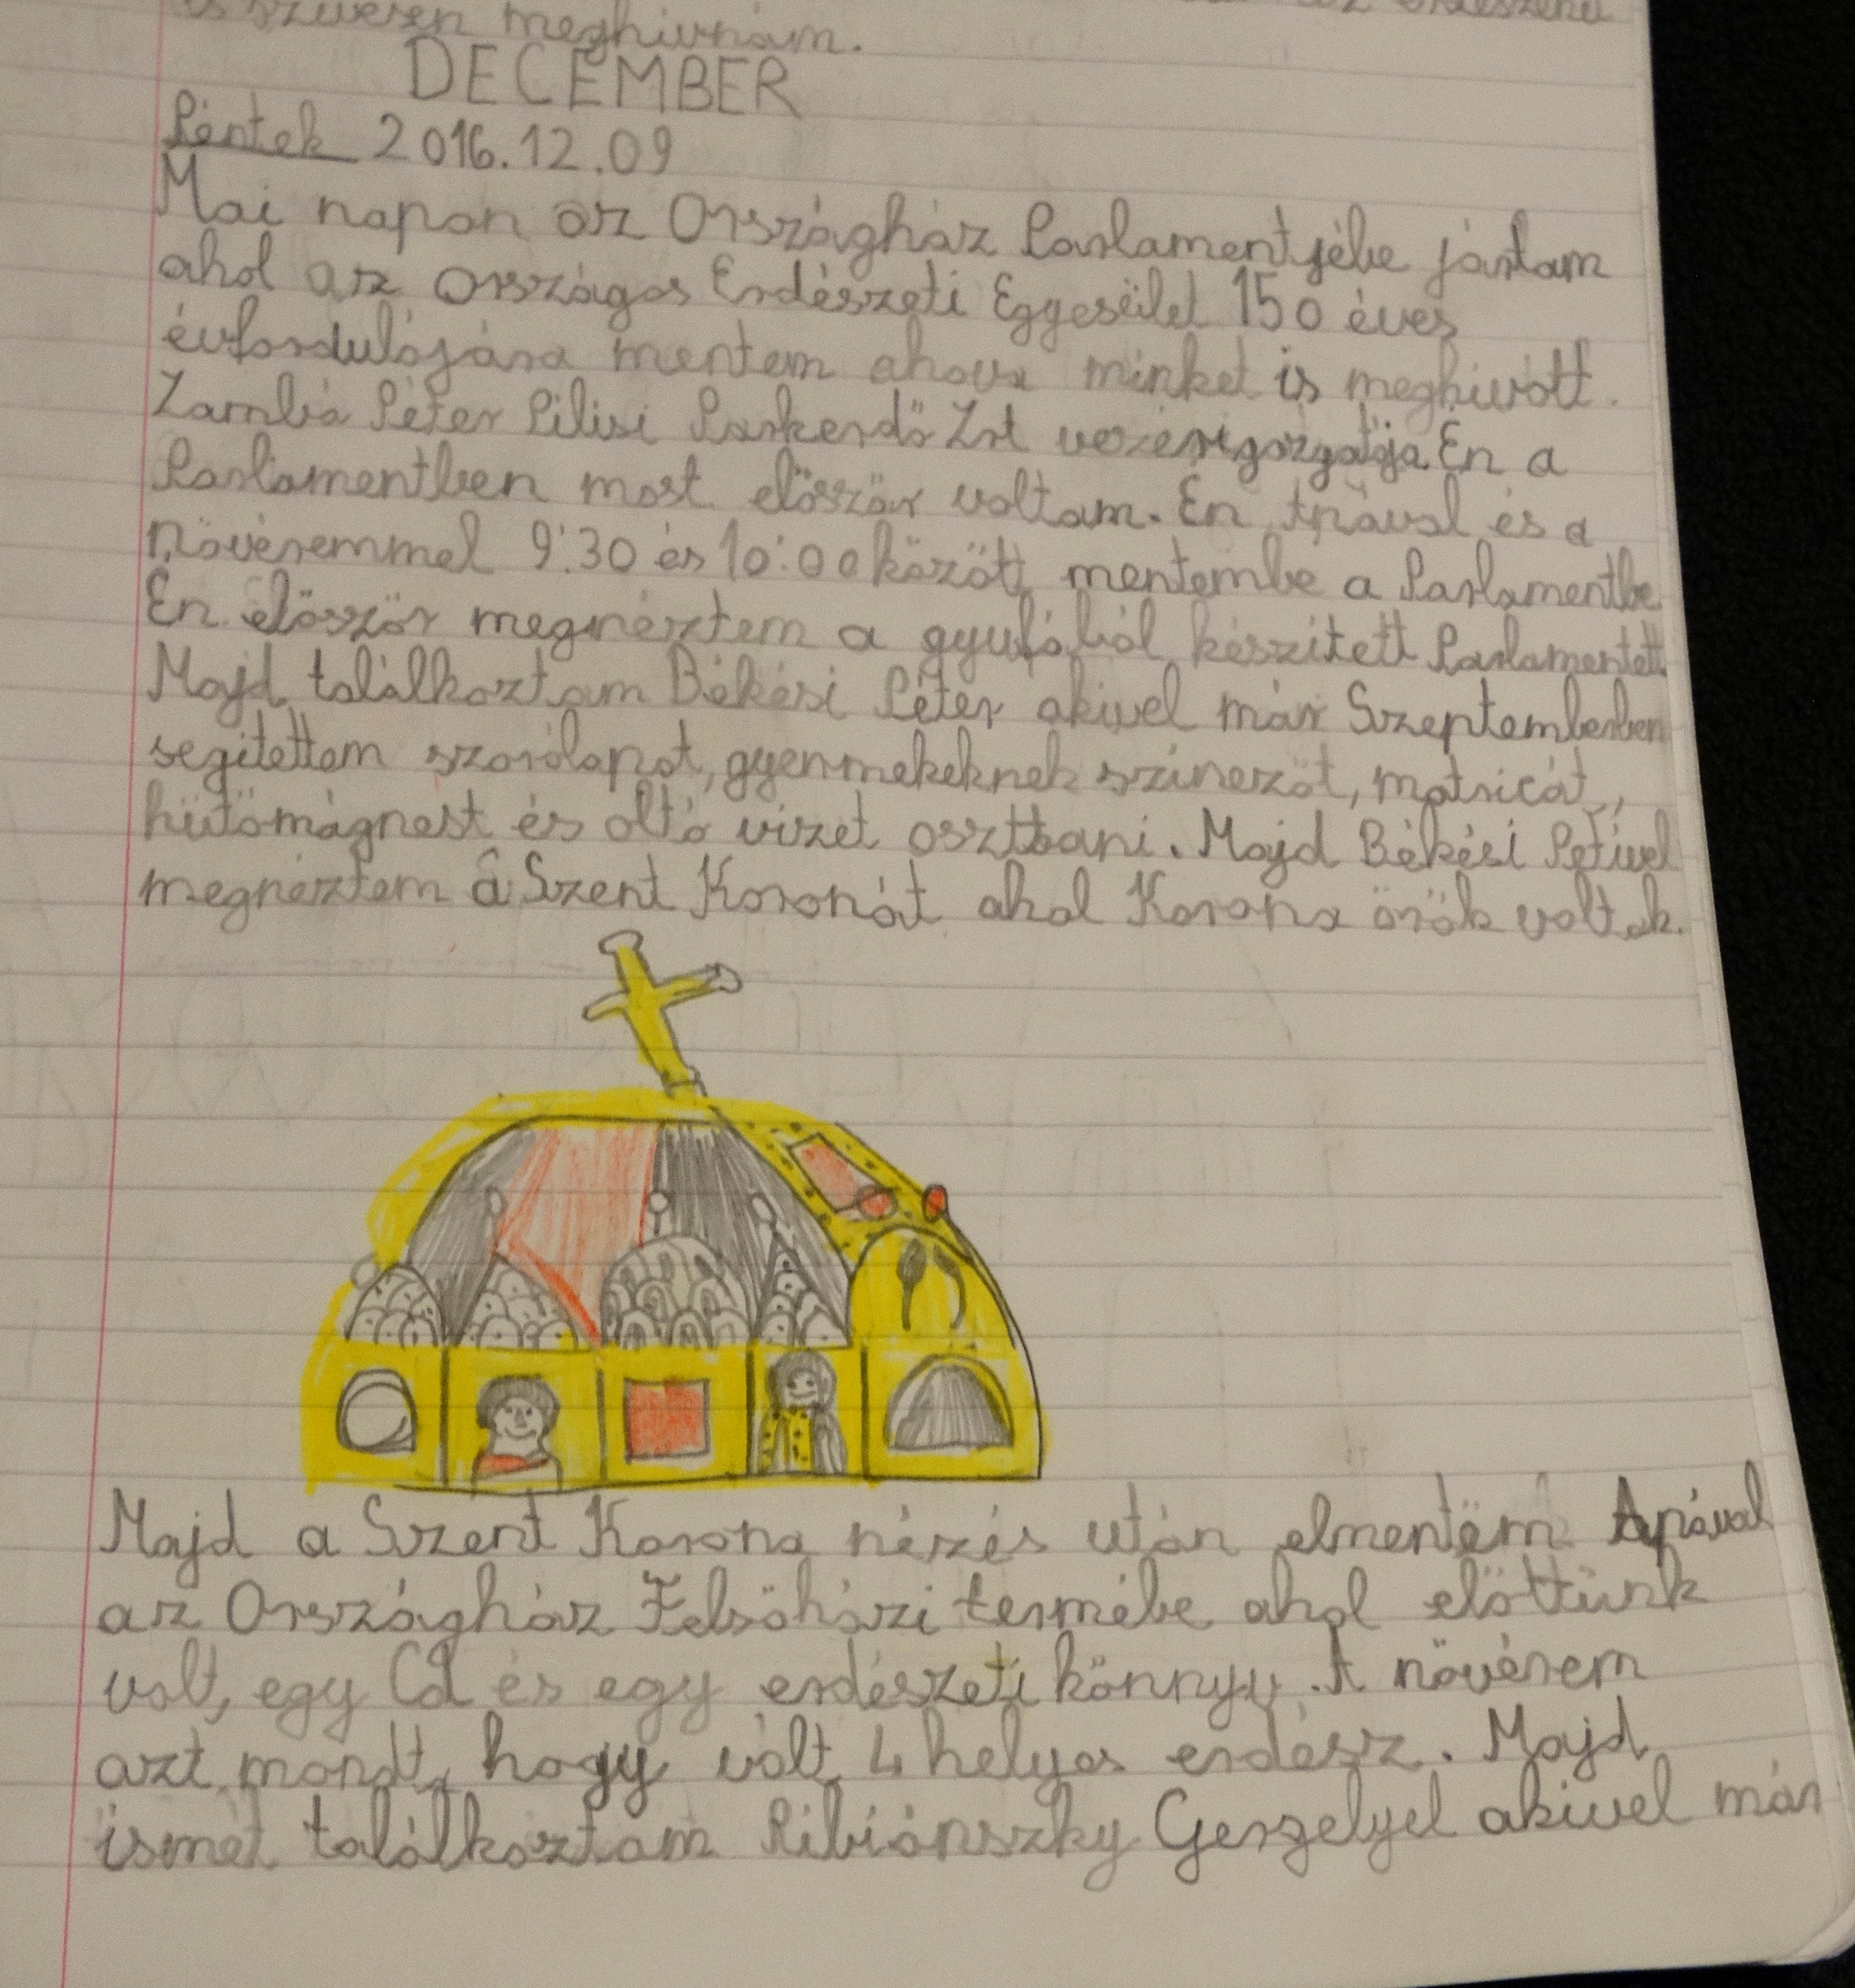 szívesen meghívnám.
DECEMBER
Péntek 2016.12.09
Mai napon az Országház Parlamentjébe jártam
ahol az Országos Erdészeti Eggyesület 150 éves
évfordulójára mentem ahova minket is meghivott.
Zambó Péter Pilisi Parkerdő Zrt vezérigazgatója. Én a
Parlamentben most előszőr voltam. Én Apával és a
növéremmel 9:30 és 10:00 között mentembe a Parlamentbe
Én előszőr megnéztem a gyufából készített Parlamentett.
Majd találkoztam Békési Péter akivel már Szeptemberben
segítettem szorólapot, gyenmekeknek színezőt, matricát,
hűtőmágnest és oltó vizet osztani. Majd Békési Petivel
megnéztem a Szent Koronát ahol Korona örök voltak.
Majd a Szent Korona nézés után elmentem Apával
az Országház Felsőházi termébe ahol előttünk
volt, egy Cd és egy erdészeti könnyv. A növérem
azt mondt, hogy vólt 4 helyes erdész. Majd
ismét találkoztam Ribiánszky Gergelyel akivel már